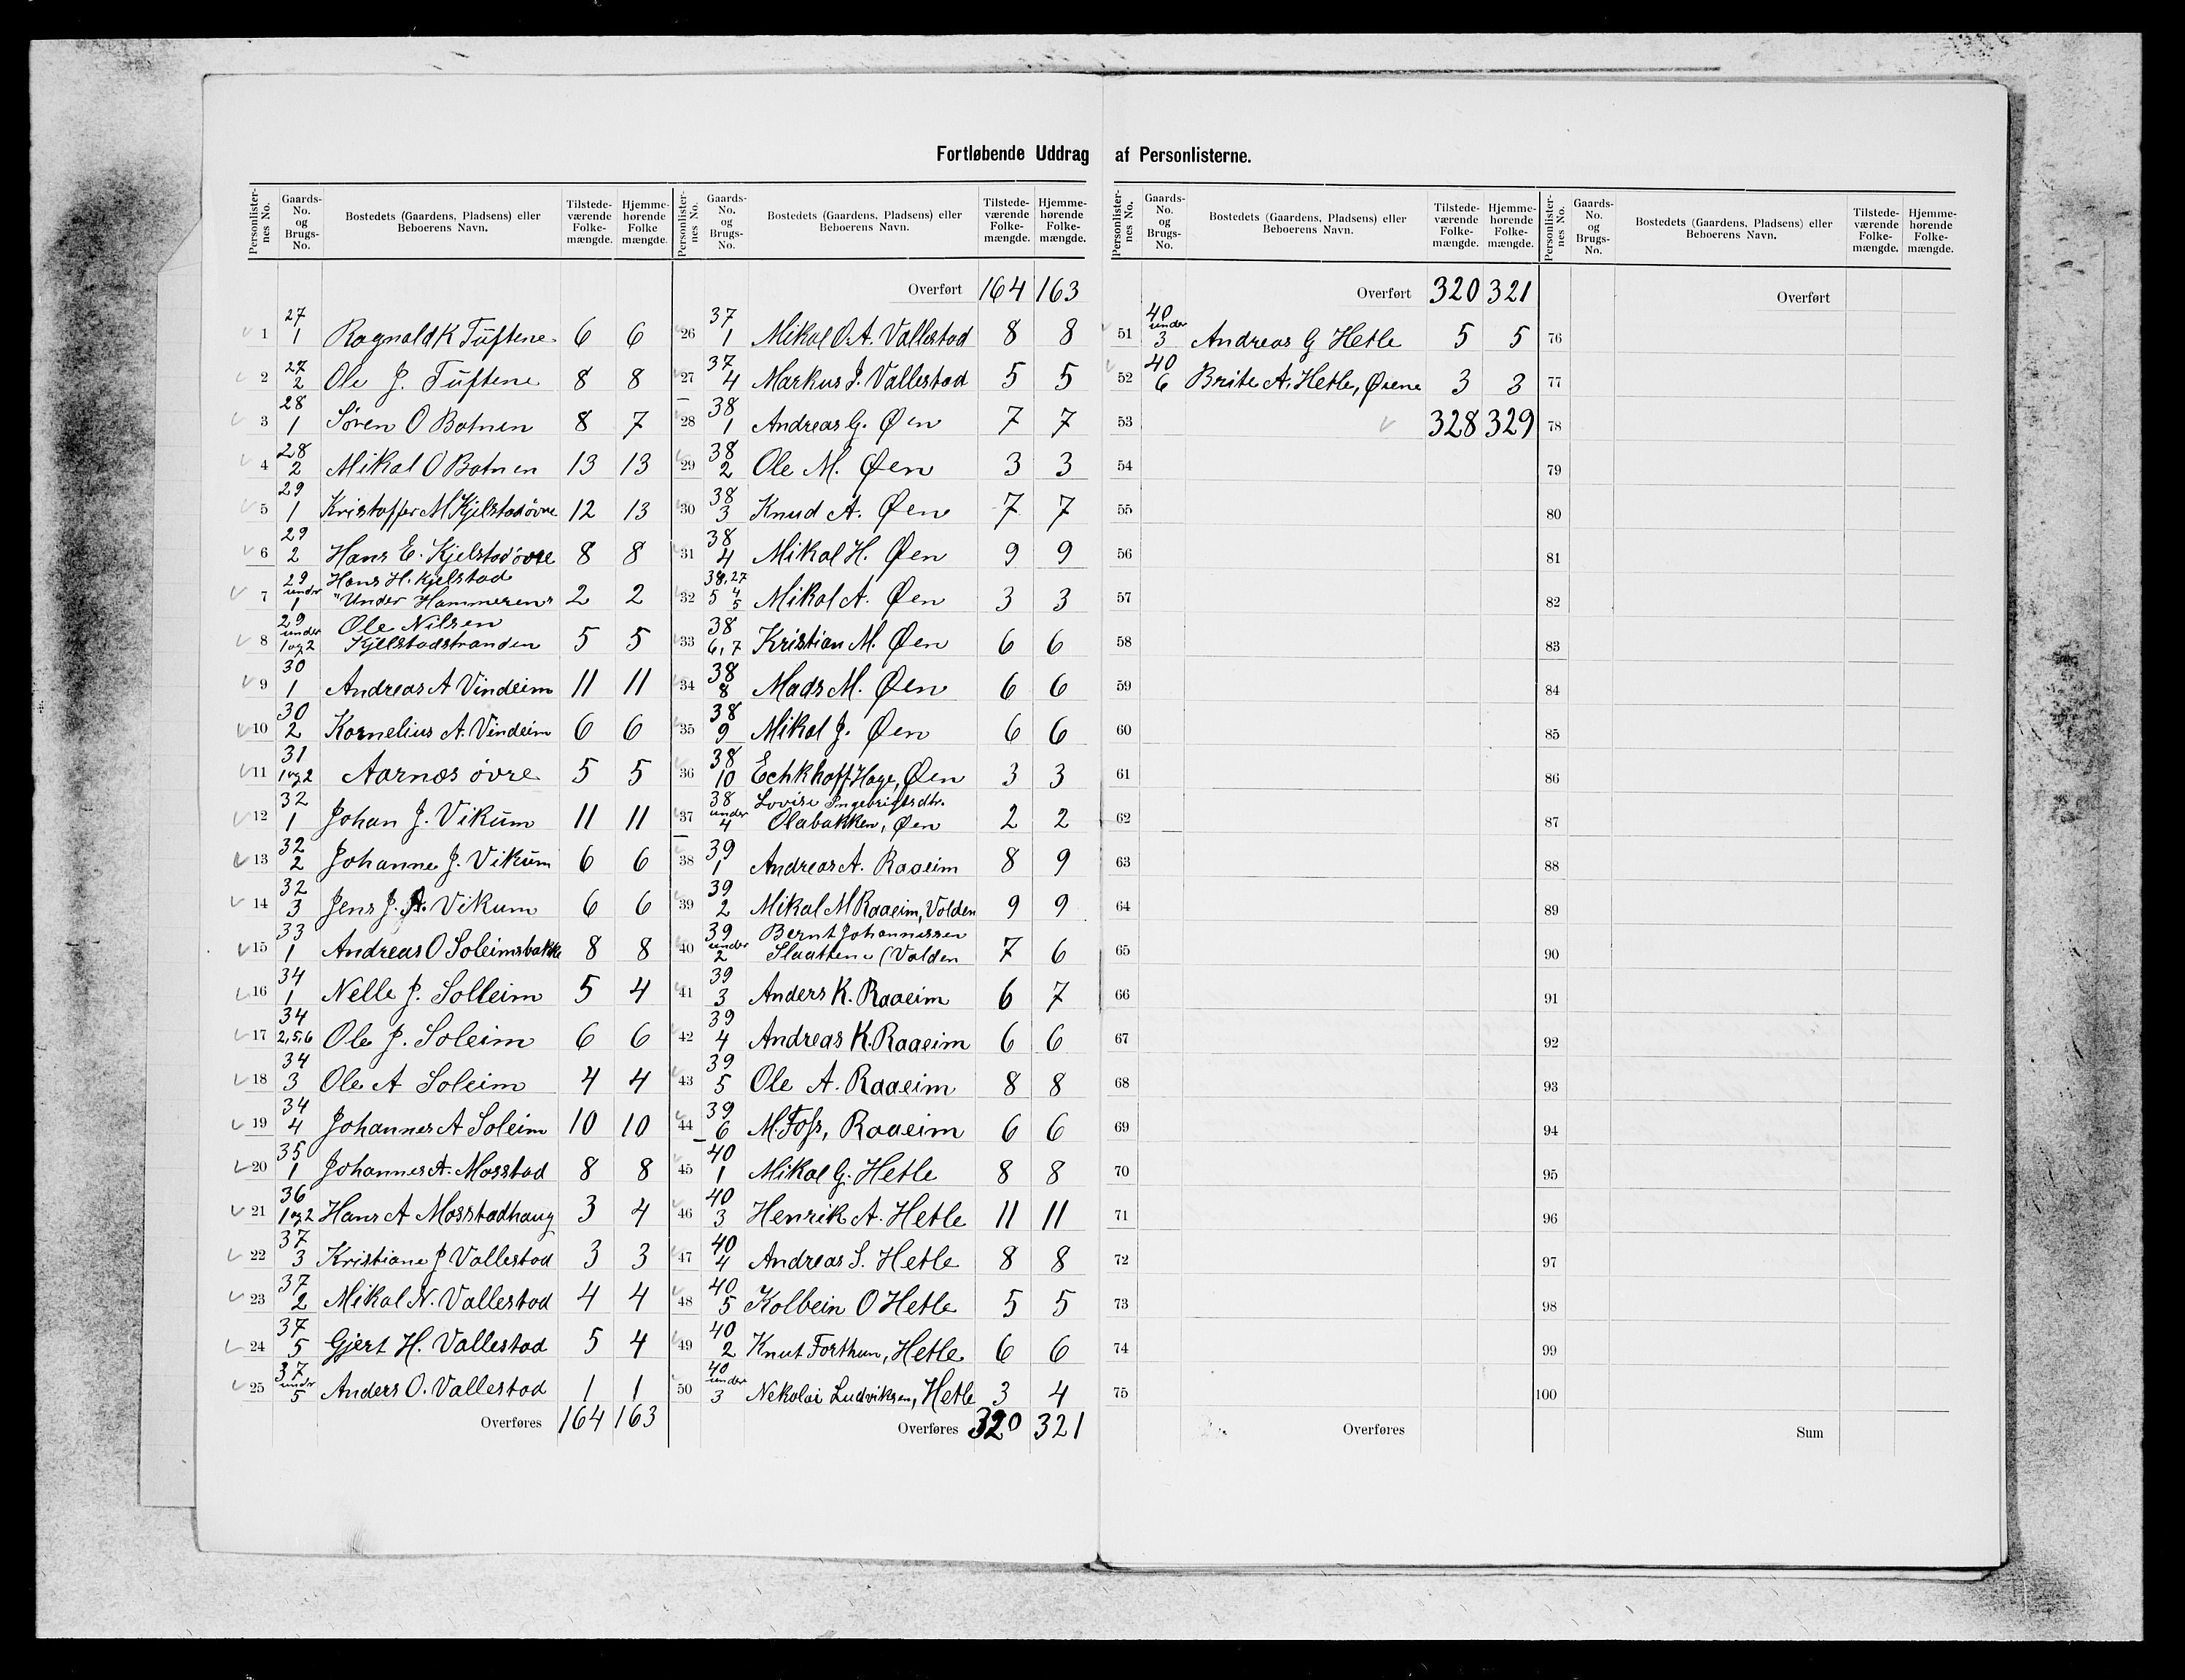 Fortløbende Uddrag af Personlisterne.
Personlisternes No. | Gaards-No. og Brugs-No. | Bostedets (Gaardens, Pladsens) eller Beboerens Navn. | Tilstedeværende Folkemængde. | Hjemmehørende Folke mængde.
1 | 27 1 | Ragnald K Tuftene | 6 | 6
2 | 27 2 | Ole J. Tuftene | 8 | 8
3 | 28 1 | Søren O Botnen | 8 | 7
4 | 28 2 | Mikal O Botnen | 13 | 13
5 | 29 1 | Kristoffer M Kjelstadøvre | 12 | 13
6 | 29 2 | Hans E. Kjelstadøvre | 8 | 8
7 | 29 under 1 | Hans H. Kjelstad "Under Hammeren" | 2 | 2
8 | 29 under 1 og 2 | Ole Nilsen Kjelstadstranden | 5 | 5
9 | 30 1 | Andreas A Vindeim | 11 | 11
10 | 30 2 | Kornelius A. Vindeim | 6 | 6
11 | 31 1 og 2 | Aarnæs øvre | 5 | 5
12 | 32 1 | Johan J. Vikum | 11 | 11
13 | 32 2 | Johanne J. Vikum | 6 | 6
14 | 32 3 | Jens J. A. Vikum | 6 | 6
15 | 33 1 | Andreas O Soleimsbakke | 8 | 8
16 | 34 1 | Nelle J. Solleim | 5 | 4
17 | 34 2,5,6 | Ole J. Soleim | 6 | 6
18 | 34 3 | Ole A Soleim | 4 | 4
19 | 34 4 | Johannes A Soleim | 10 | 10
20 | 35 1 | Johannes A. Mosstad | 8 | 8
21 | 36 1 og 2 | Hans A Mosstadhaug | 3 | 4
22 | 37 3 | Kristiane J Vallestad | 3 | 3
23 | 37 2 | Mikal N. Vallestad | 4 | 4
24 | 37 5 | Gjert H. Vallestad | 5 | 4
25 | 37 under 5 | Anders O. Vallestad | 1 | 1
Overføres 164 163
Personlisternes No. | Gaards-No. og Brugs-No. | Bostedets (Gaardens, Pladsens) eller Beboerens Navn. | Tilstedeværende Folkemængde. | Hjemmehørende Folkemængde.
Overført 164 163
26 | 37 1 | Mikal O. A. Vallestad | 8 | 8
27 | 37 4 | Markus J. Vallestad | 5 | 5
28 | 38 1 | Andreas G. Øen | 7 | 7
29 | 38 2 | Ole M. Øen | 3 | 3
30 | 38 3 | Knud A. Øen | 7 | 7
31 | 38 4 | Mikal H. Øen | 9 | 9
32 | 38,27 5 4 5 | Mikal A. Øen | 3 | 3
33 | 38 6,7 | Kristian M. Øen | 6 | 6
34 | 38 8 | Mads M. Øen | 6 | 6
35 | 38 9 | Mikal J. Øen | 6 | 6
36 | 38 10 | Echkhoff Hage, Øen | 3 | 3
37 | 38 under 4 | Lovise Ingebrigtsdtr. Olabakken, Øen | 2 | 2
38 | 39 1 | Andreas A. Raaeim | 8 | 9
39 | 39 2 | Mikal M Raaeim, Volden | 9 | 9
40 | 39 under 2 | Bernt Johannessen Slaattene (Volden | 7 | 6
41 | 39 3 | Anders K. Raaeim | 6 | 7
42 | 39 4 | Andreas K. Raaeim | 6 | 6
43 | 39 5 | Ole A. Raaeim | 8 | 8
44 | 39 6 | M. Foss, Raaeim | 6 | 6
45 | 40 1 | Mikal G. Hetle | 8 | 8
46 | 40 3 | Henrik A. Hetle | 11 | 11
47 | 40 4 | Andreas S. Hetle | 8 | 8
48 | 40 5 | Kolbein O Hetle | 5 | 5
49 | 40 2 | Knut Forthun, Hetle | 6 | 6
50 | 40 under 3 | Nekolai Ludviksen, Hetle | 3 | 4
Overføres 320 321
Personlisternes No. | Gaards-No. og Brugs-No. | Bostedets (Gaardens, Pladsens) eller Beboerens Navn. | Tilstedeværende Folkemængde. | Hjemmehørende Folkemængde.
Overført 320 321
51 | 40 under 3 | Andreas G Hetle | 5 | 5
52 | 40 6 | Brite A. Hetle, Øiene | 3 | 3
53 | 328 | 329
54
55
56
57
58
59
60
61
62
63
64
65
66
67
68
69
70
71
72
73
74
75
Overføres
Personlisternes No. | Gaards-No. og Brugs-No. | Bostedets (Gaardens, Pladsens) eller Beboerens Navn. | Tilstedeværende Folkemængde. | Hjemmehørende Folkemængde.
Overført
76
77
78
79
80
81
82
83
84
85
86
87
88
89
90
91
92
93
94
95
96
97
98
99
100
Sum